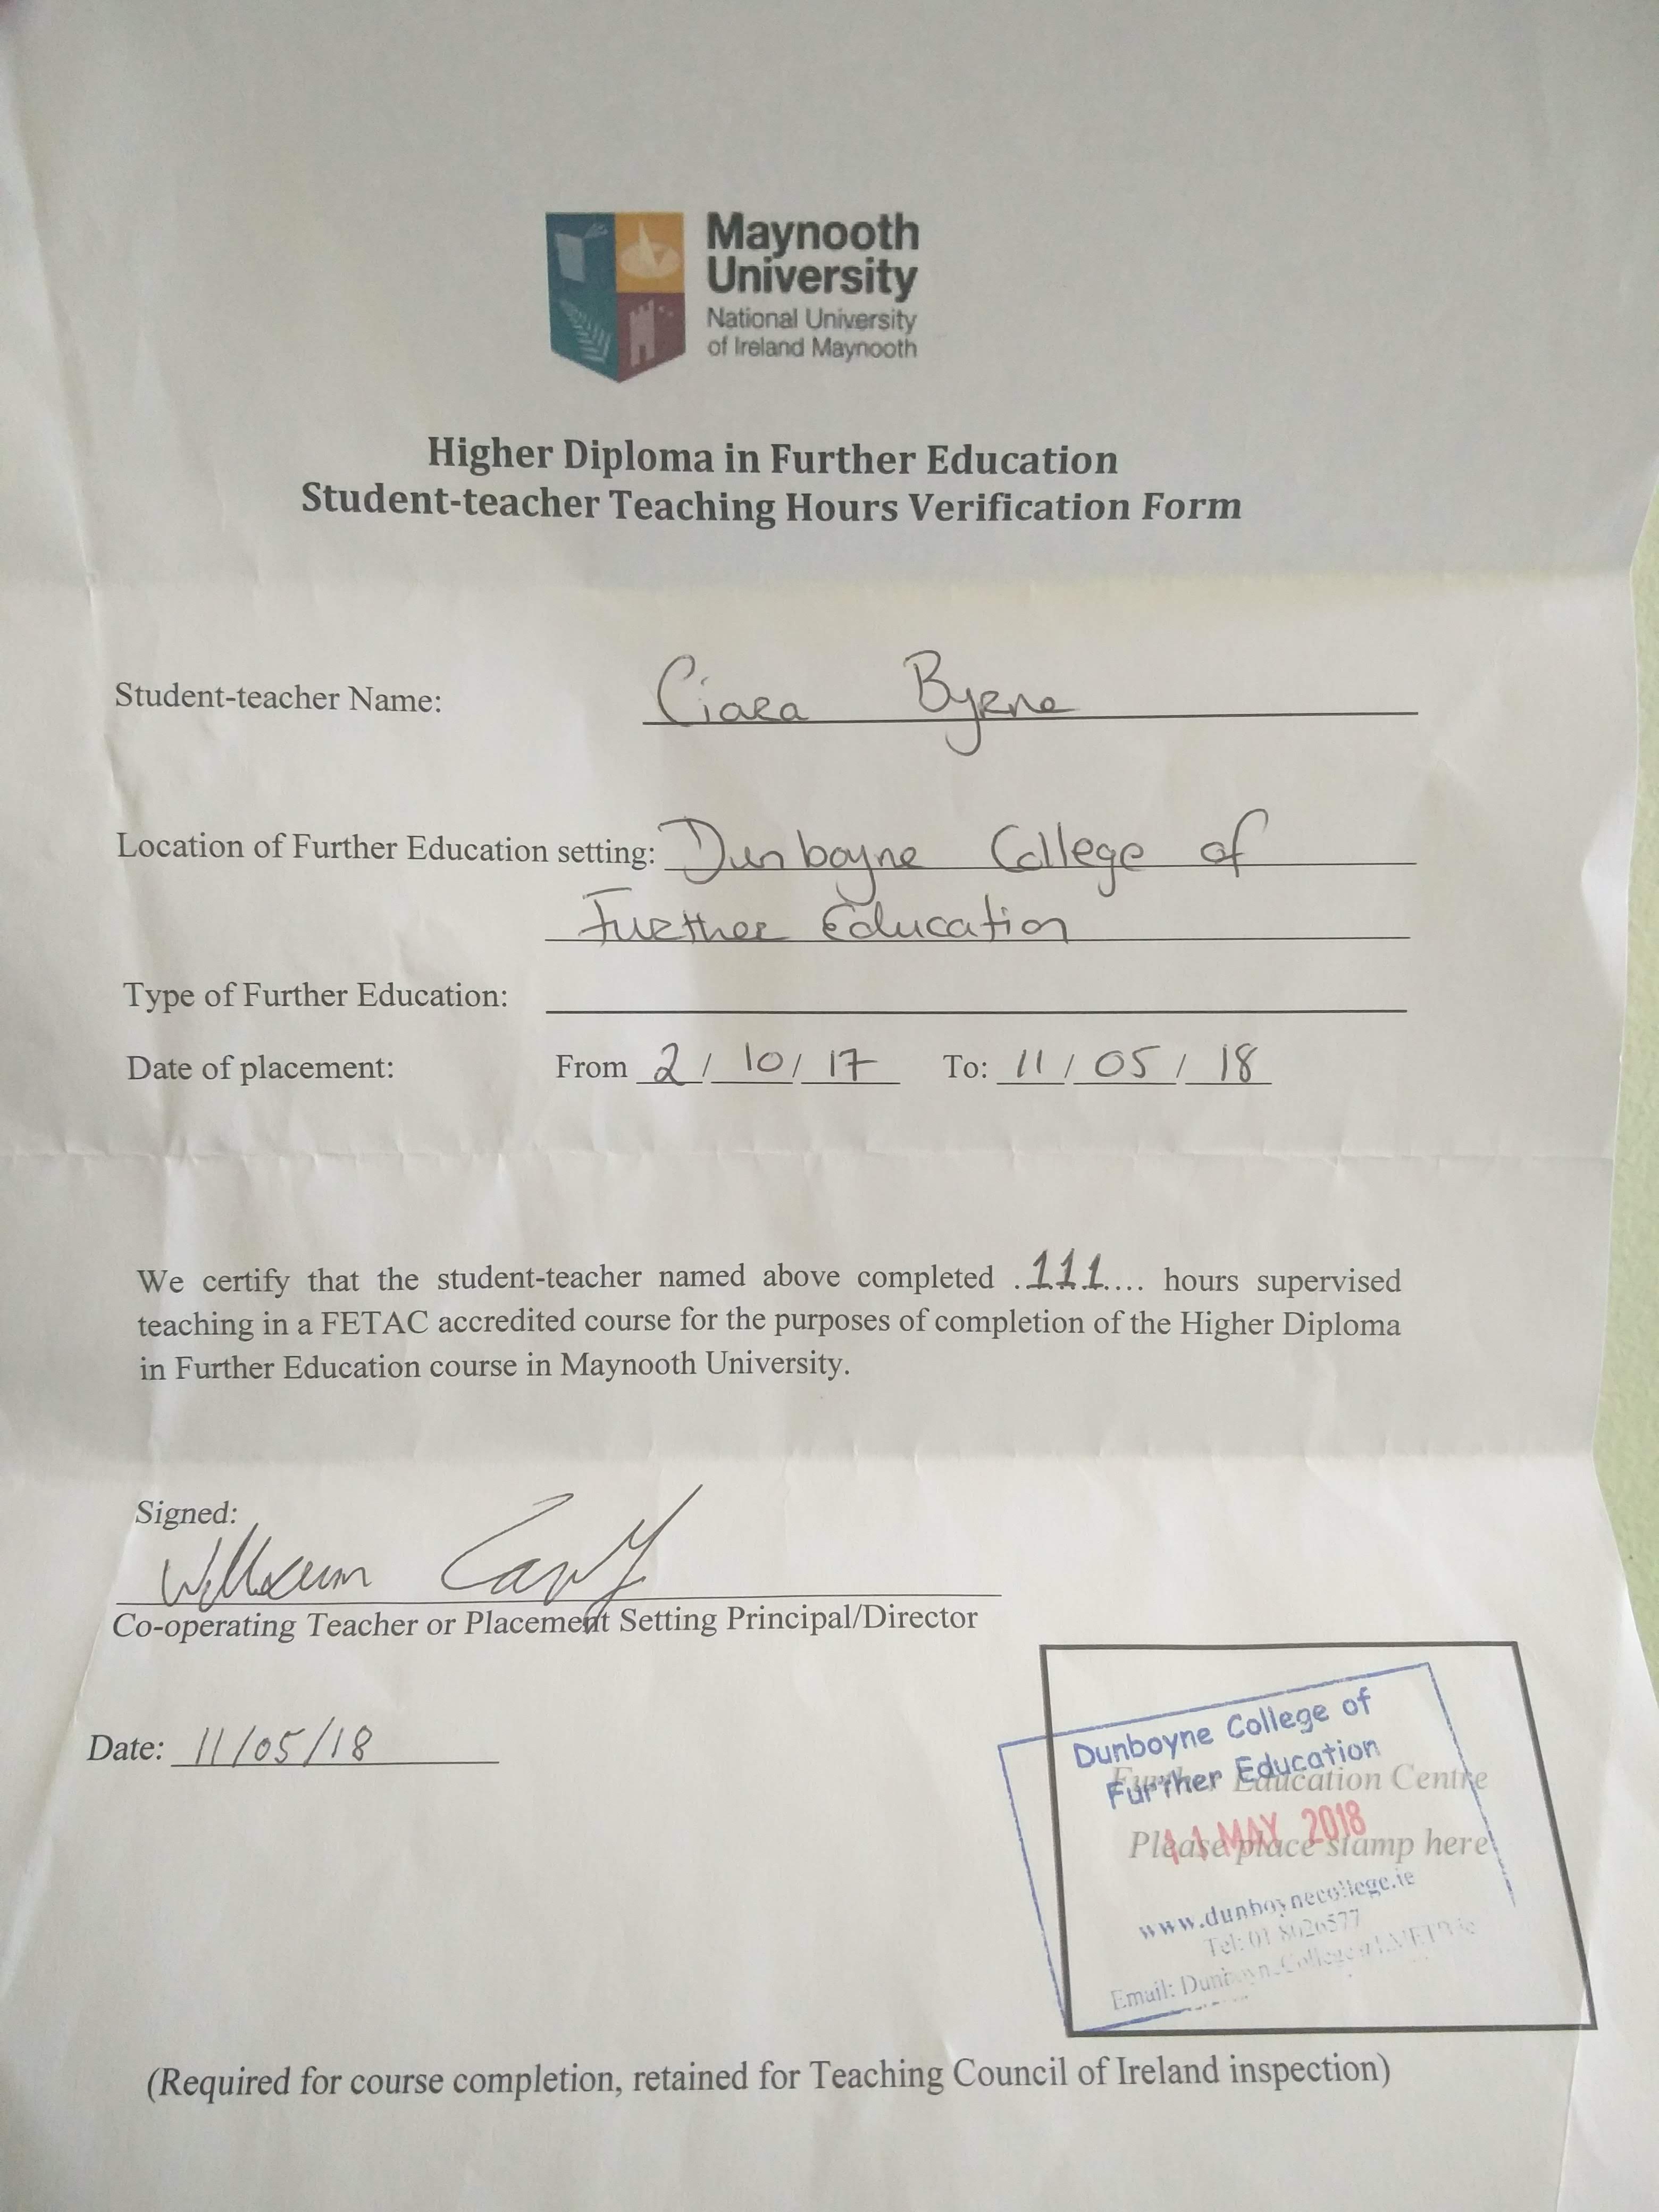 Maynooth
University
National University
of Ireland Maynooth
Higher Diploma in Further Education
Student-teacher Teaching Hours Verification Form
Student-teacher Name: Ciara Byrne
Location of Further Education setting: Dunboyne College of
Further Education
Type of Further Education:
Date of placement: From 2 / 10 / 17 To: 11 / 05 / 18
We certify that the student-teacher named above completed .111.... hours supervised
teaching in a FETAC accredited course for the purposes of completion of the Higher Diploma
in Further Education course in Maynooth University.
Signed:
William
Co-operating Teacher or Placement Setting Principal/Director
Date: 11/05/18
Dunboyne College of
Further Education
Further Education Centre
11 MAY 2018
Please place stamp here
www.dunboynecollege.ie
Tel: 01 8026577
Email:
(Required for course completion, retained for Teaching Council of Ireland inspection)